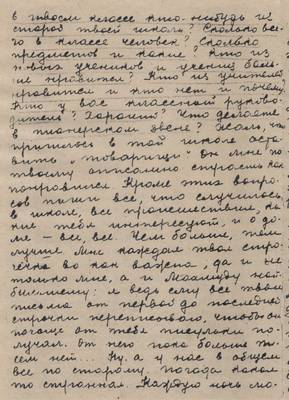 в твоем классе кто-нибудь из
старой твоей школы? Сколько все-
го в классе человек? Сколько
предметов и какие? Кто из
новых учеников и учениц боль-
ше нравится? Кто из учителей
нравится и кто нет и почему?
Кто у вас классный руково-
дитель? Хороший? Что делаете
в пионерском звене? Жаль, что
пришлось в той школе оста-
вить "товарища". Он мне по
твоему описанию страсть как
понравился. Кроме этих вопро-
сов пиши все, что случилось
в школе, все происшествия, ка-
кие тебя интересуют, и о до-
ме – все, все. Чем больше, тем
лучше. Мне каждая твоя стро-
чечка во как важна, да и не
только мне, а и
: я ведь ему все твои
письма от первой до последней
строчки переписываю, чтобы он
почаще от тебя писульки по-
лучал. От него пока больше
нет... Ну, а у нас в общем
все по старому. Погода какая
то странная. Каждую ночь